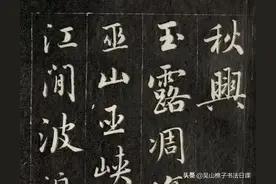 秋興
玉露凋
巫山巫峽
江澗波
头条 @吴山樵子书法日课